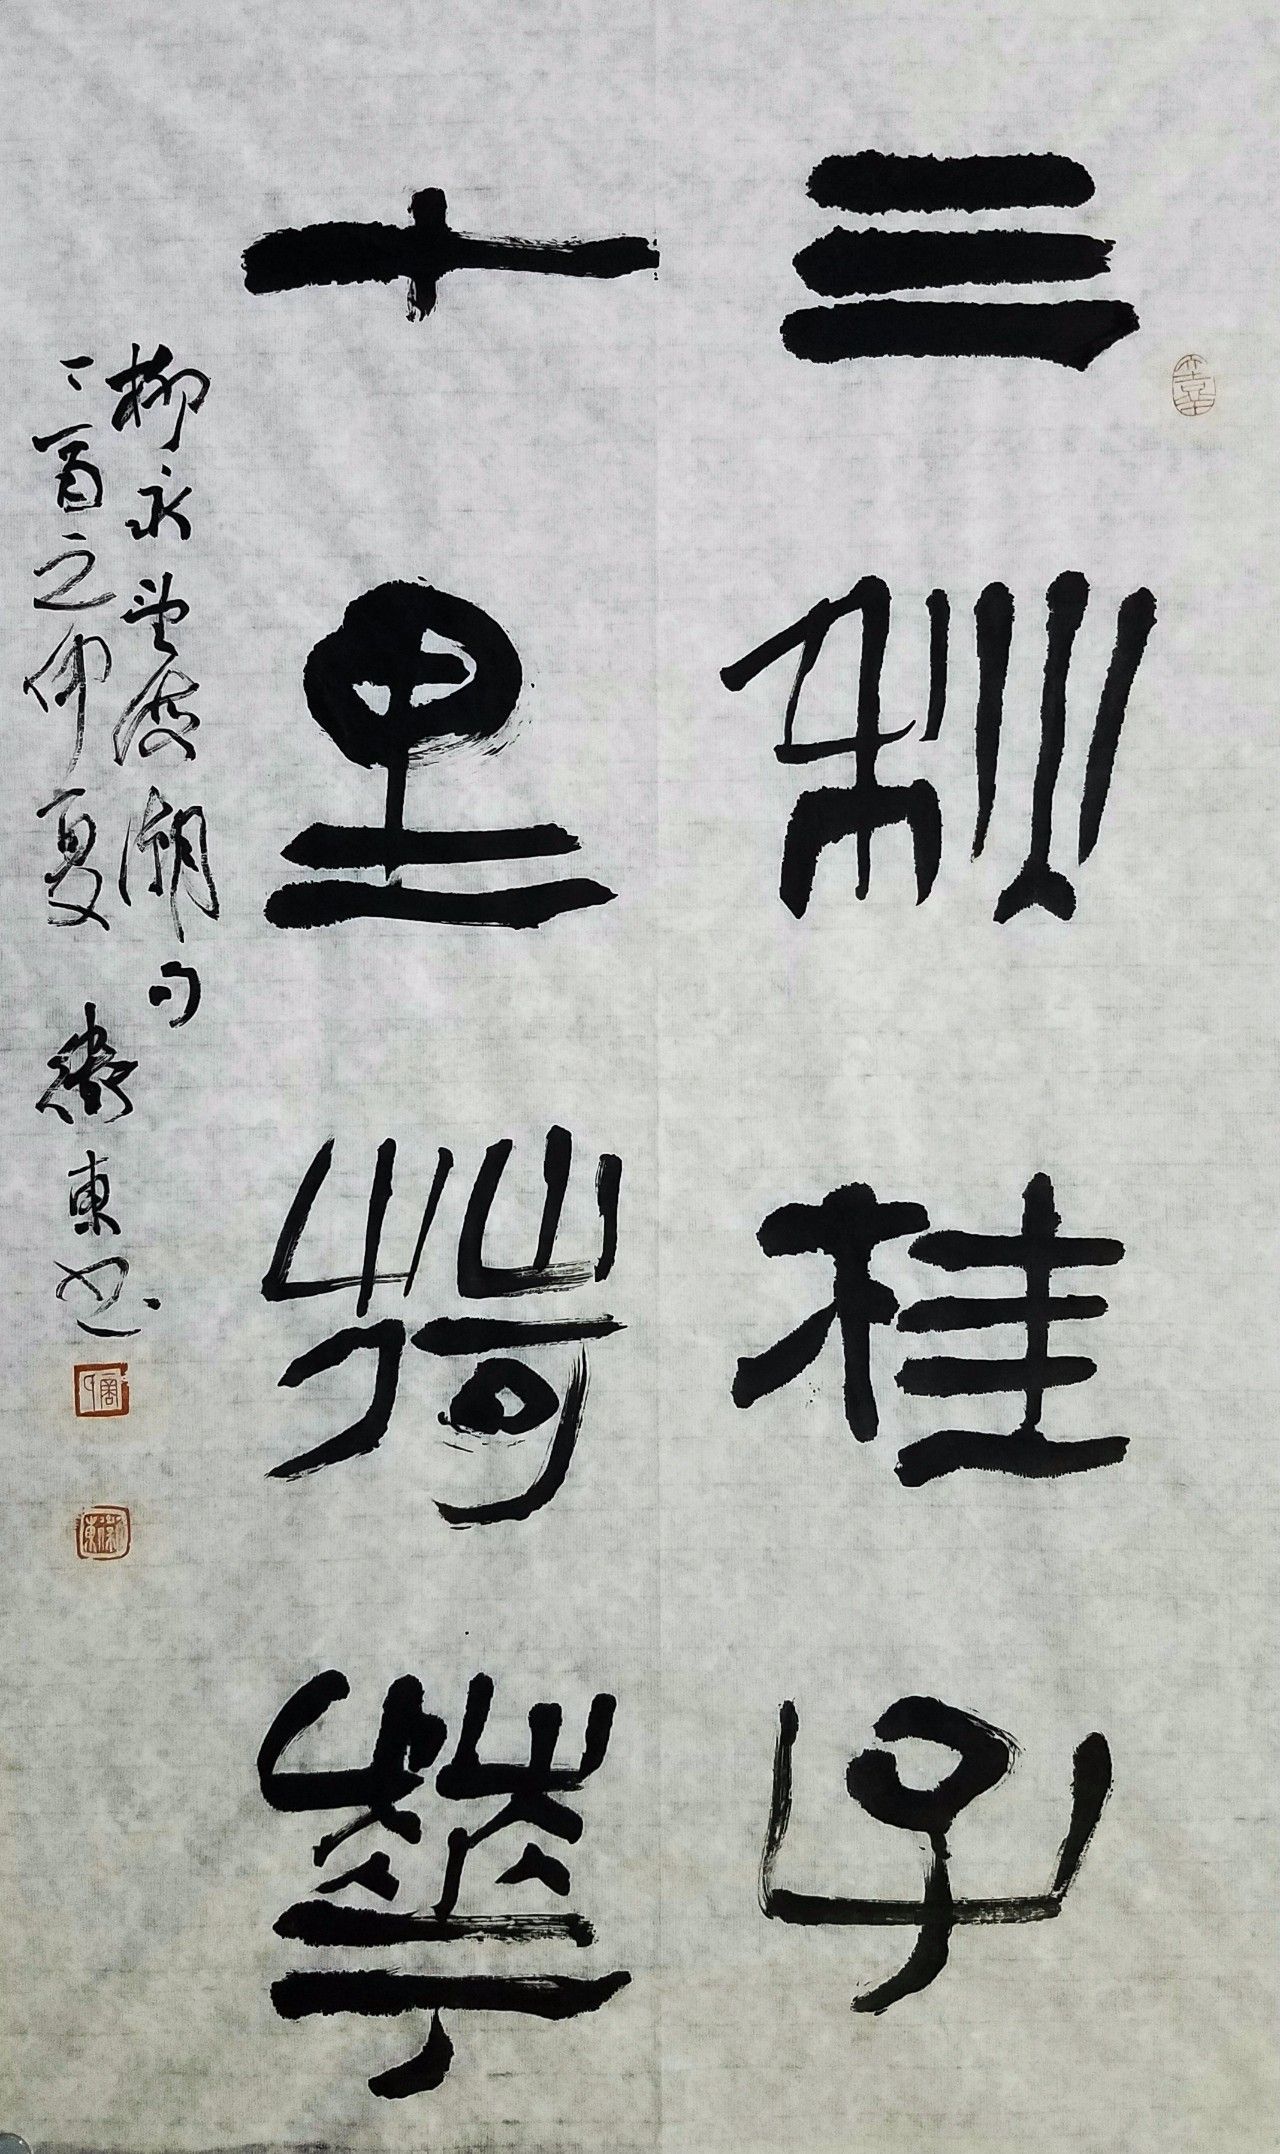 三秋桂子
十里荷華
柳永望海潮句
之仲夏 衛東书
衛東